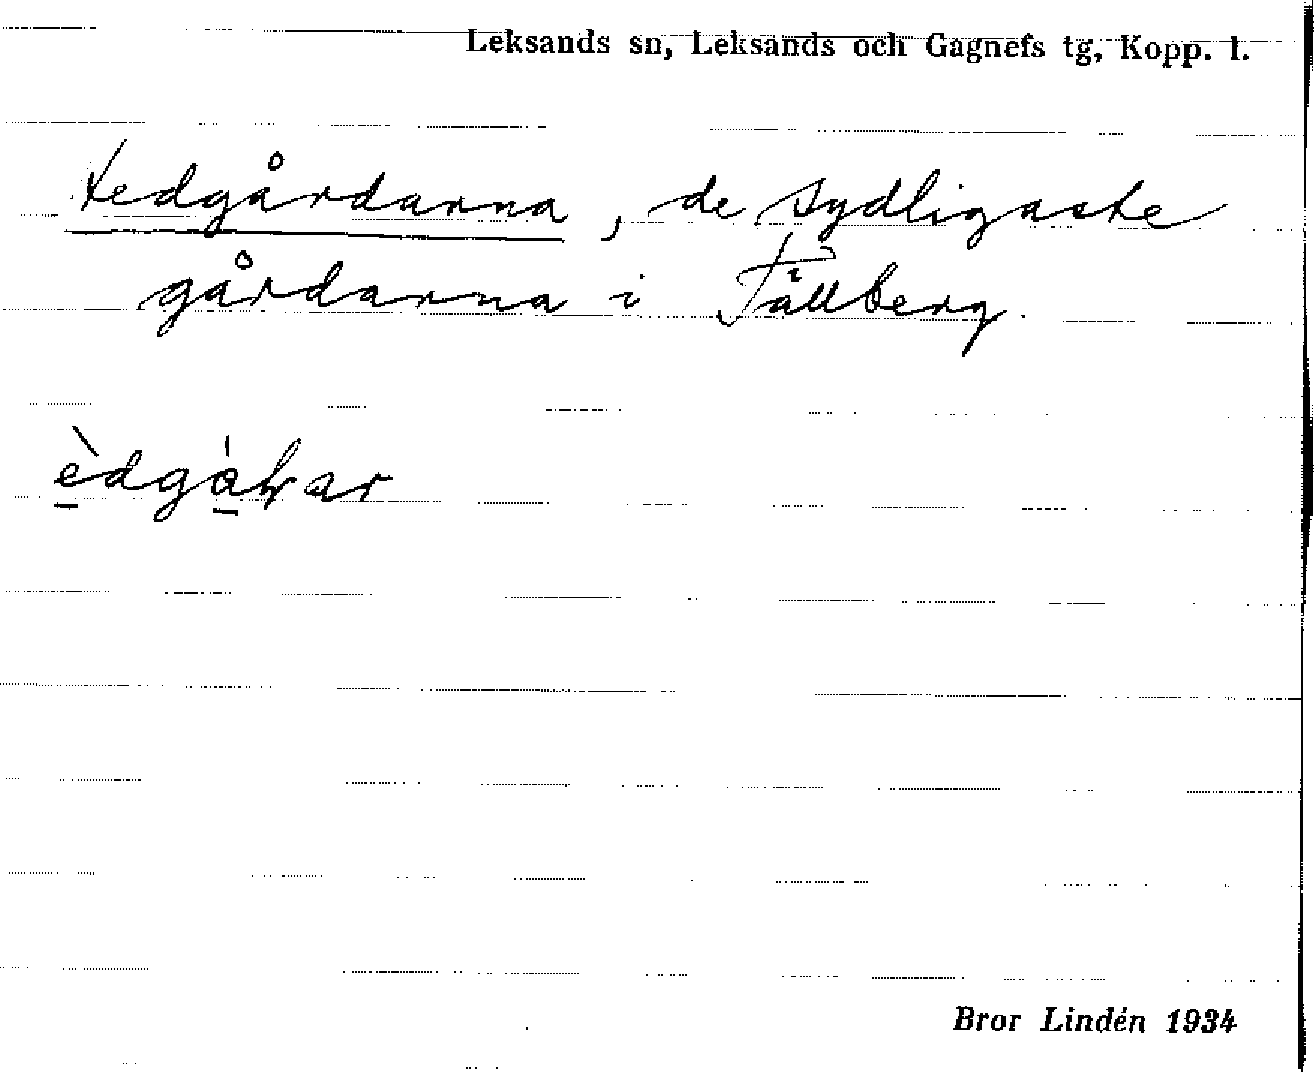 Leksands sn, Leksands och Gagnefs tg, Kopp. l.
×edgårdarna, de sydligaste
gårdarna i Tällberg.
Bror Lindén 1934